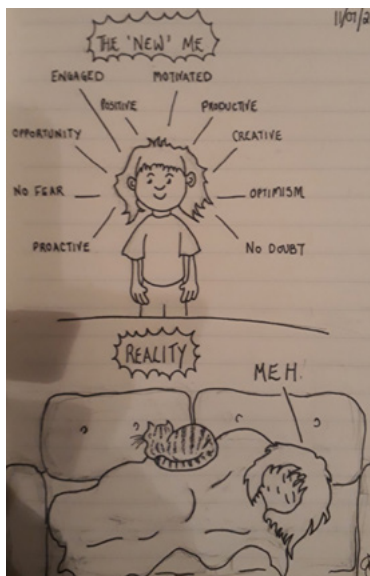 THE 'NEW' ME
ENGAGED MOTIVATED
POSITIVE PRODUCTIVE
OPPORTUNITY CREATIVE
NO FEAR OPTIMISM
PROACTIVE NO DOUBT
REALITY
MEH!